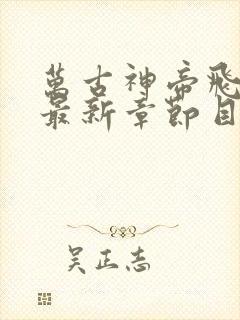 萬古神帝飛
最新章節目
吴正志